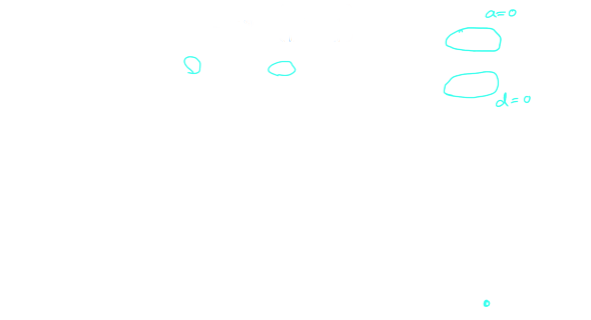 a=0
d=0